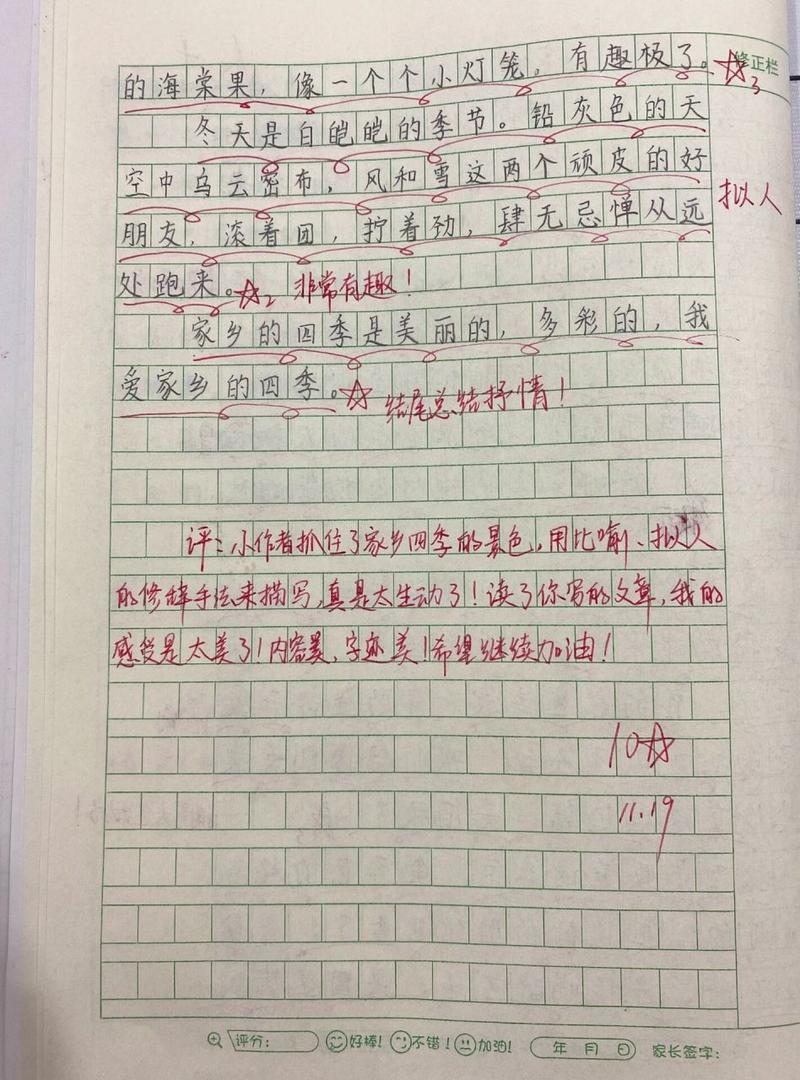 的海棠果，像一个个小灯笼。有趣极了。☆3
修正栏
冬天是白皑皑的季节。铅灰色的天
空中乌云密布，风和雪这两个顽皮的好
拟人
朋友，滚着团，拧着劲，肆无忌惮从远
处跑来。☆2 非常有趣！
家乡的四季是美丽的，多彩的，我
爱家乡的四季。☆ 结尾总结抒情！
评：小作者抓住了家乡四季的景色，用比喻、拟人
的修辞手法来描写，真是太生动了！读了你写的文章，我的
感受是太美了！内容美，字迹美！希望继续加油！
10☆
11.19
评分： 好棒！ 不错！ 加油！ 年 月 日 家长签字：